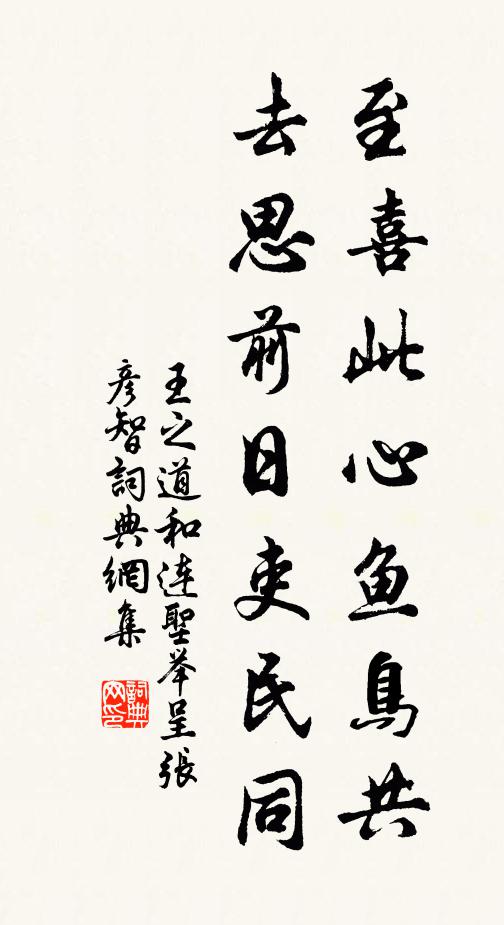 至喜此心鱼鳥共
去思前日吏民同
王之道和连聖举呈張
彦智詞典網集
詞典网印